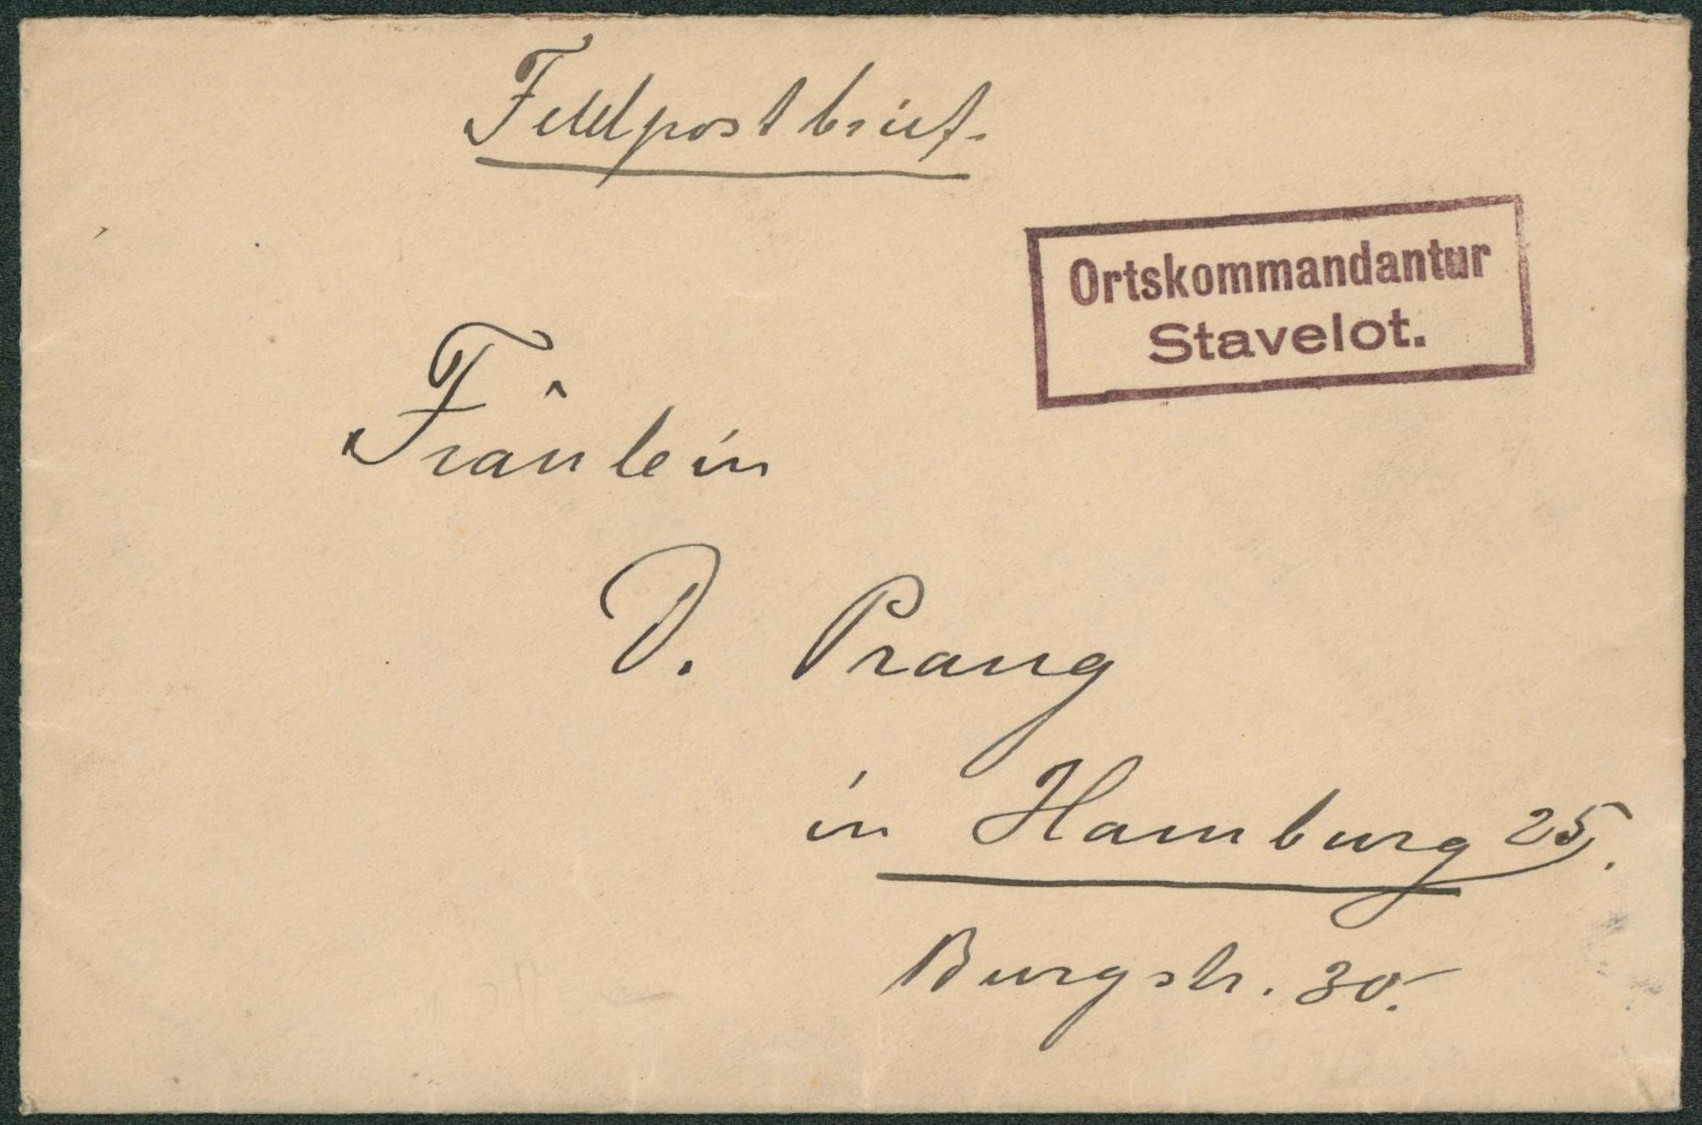 Feldpostbrief.
Ortskommandantur
Stavelot.
Fräulein
D. Prang
in Hamburg 25.
Burgstr. 30.